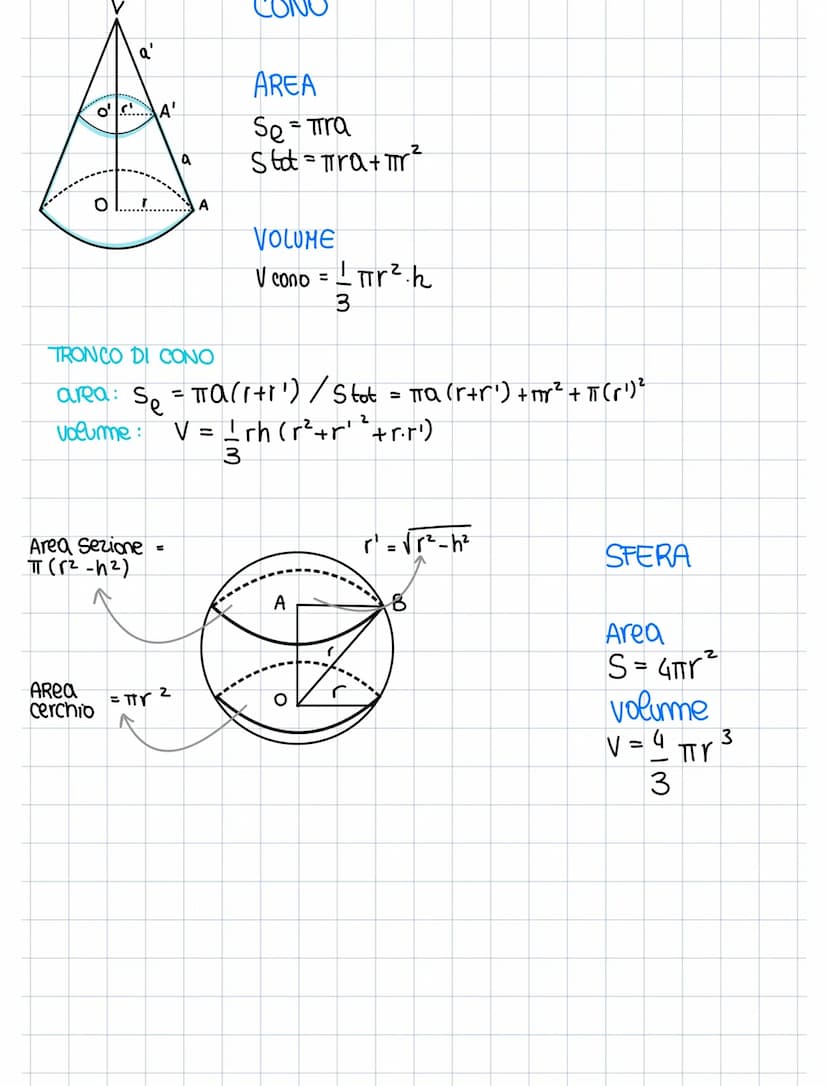 V
CONO
a'
O' r' A'
a
O r A
AREA
Sℓ = πra
Stot = πra + πr²
VOLUME
V cono = 1/3 πr² · h
TRONCO DI CONO
area: Sℓ = πa(r+r') / Stot = πa(r+r') + πr² + π(r')²
volume: V = 1/3 rh (r² + r'² + r·r')
Area sezione =
π(r² - h²)
r' = √r² - h²
A B
r
O r
AREA
cerchio = πr²
SFERA
Area
S = 4πr²
volume
V = 4/3 πr³